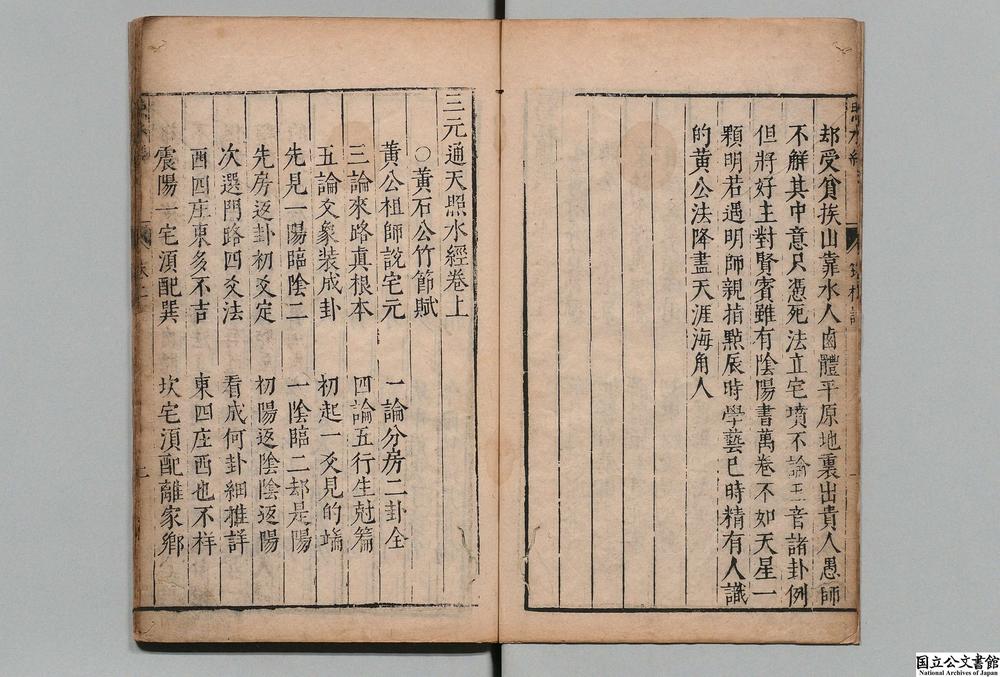 却受貧挨山靠水人鹵體平原地裏出貴人愚師
不解其中意只憑死法立宅墳不論五音諸卦例
但將好主對賢賓雖有陰陽書萬卷不如天星一
顆明若遇明師親指㸃辰時學藝巳時精有人識
的黄公法降盡天涯海角人
三元通天照水經卷上
○黄石公竹節賦
黄公祖師說宅元　一論分房二卦全
三論來路真根本　四論五行生尅篇
五論爻象裝成卦　初起一爻見的端
先見一陽臨陰二　一陰臨二却是陽
先房返卦初爻定　初陽返陰陰返陽
次選門路四爻法　看成何卦細推詳
酉四庄東多不吉　東四庄西也不祥
震陽一宅湏配巽　坎宅湏配離家鄉
二
国立公文書館
National Archives of Japan